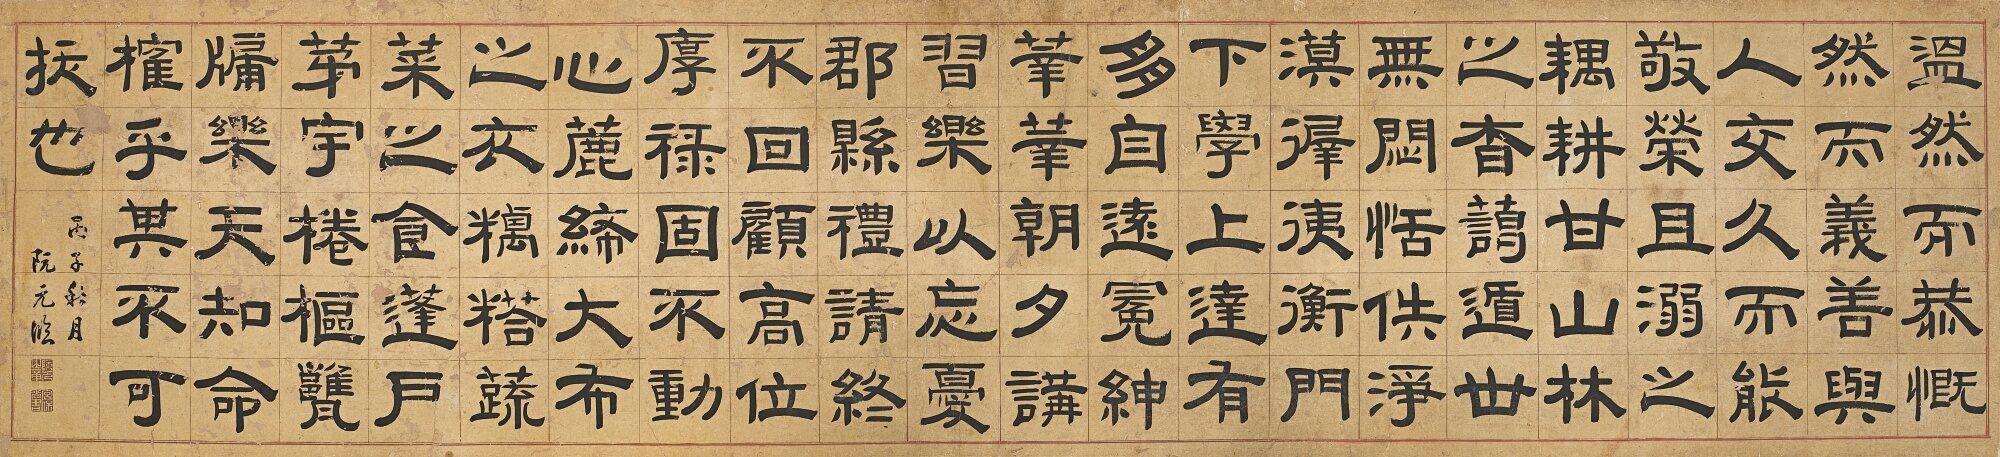 溫然而恭慨
然而義善與
人交久而能
敬榮且溺之
耦耕甘山林
之杳藹遁世
無悶恬佚淨
漠徲衡門
下學上達有
多自遠冕紳
莘莘朝夕講
習樂以忘憂
郡縣禮請終
不回顧高位
厚祿固不動
心麤絺大布
之衣糲荅蔬
菜之食蓬戶
茅宇棬樞甕
牖樂天知命
榷乎其不可
拔也
丙子秋月
阮元臨